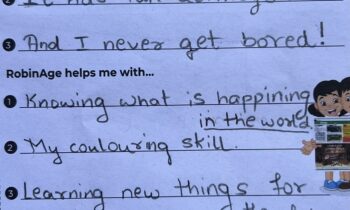 3 And I never get bored!
RobinAge helps me with...
1 Knowing what is happining
in the world
2 My coulouring skill.
3 Learning new things for